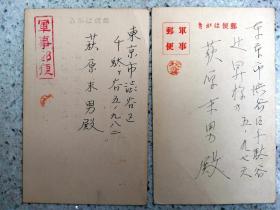 郵便はがき
軍事
郵便
東京市渋谷区千駄ケ谷
五ノ九七六
辻昇様方
荻原末男殿
郵便はがき
軍事郵便
東京市渋谷区
千駄ケ谷五ノ九八二
荻原末男殿